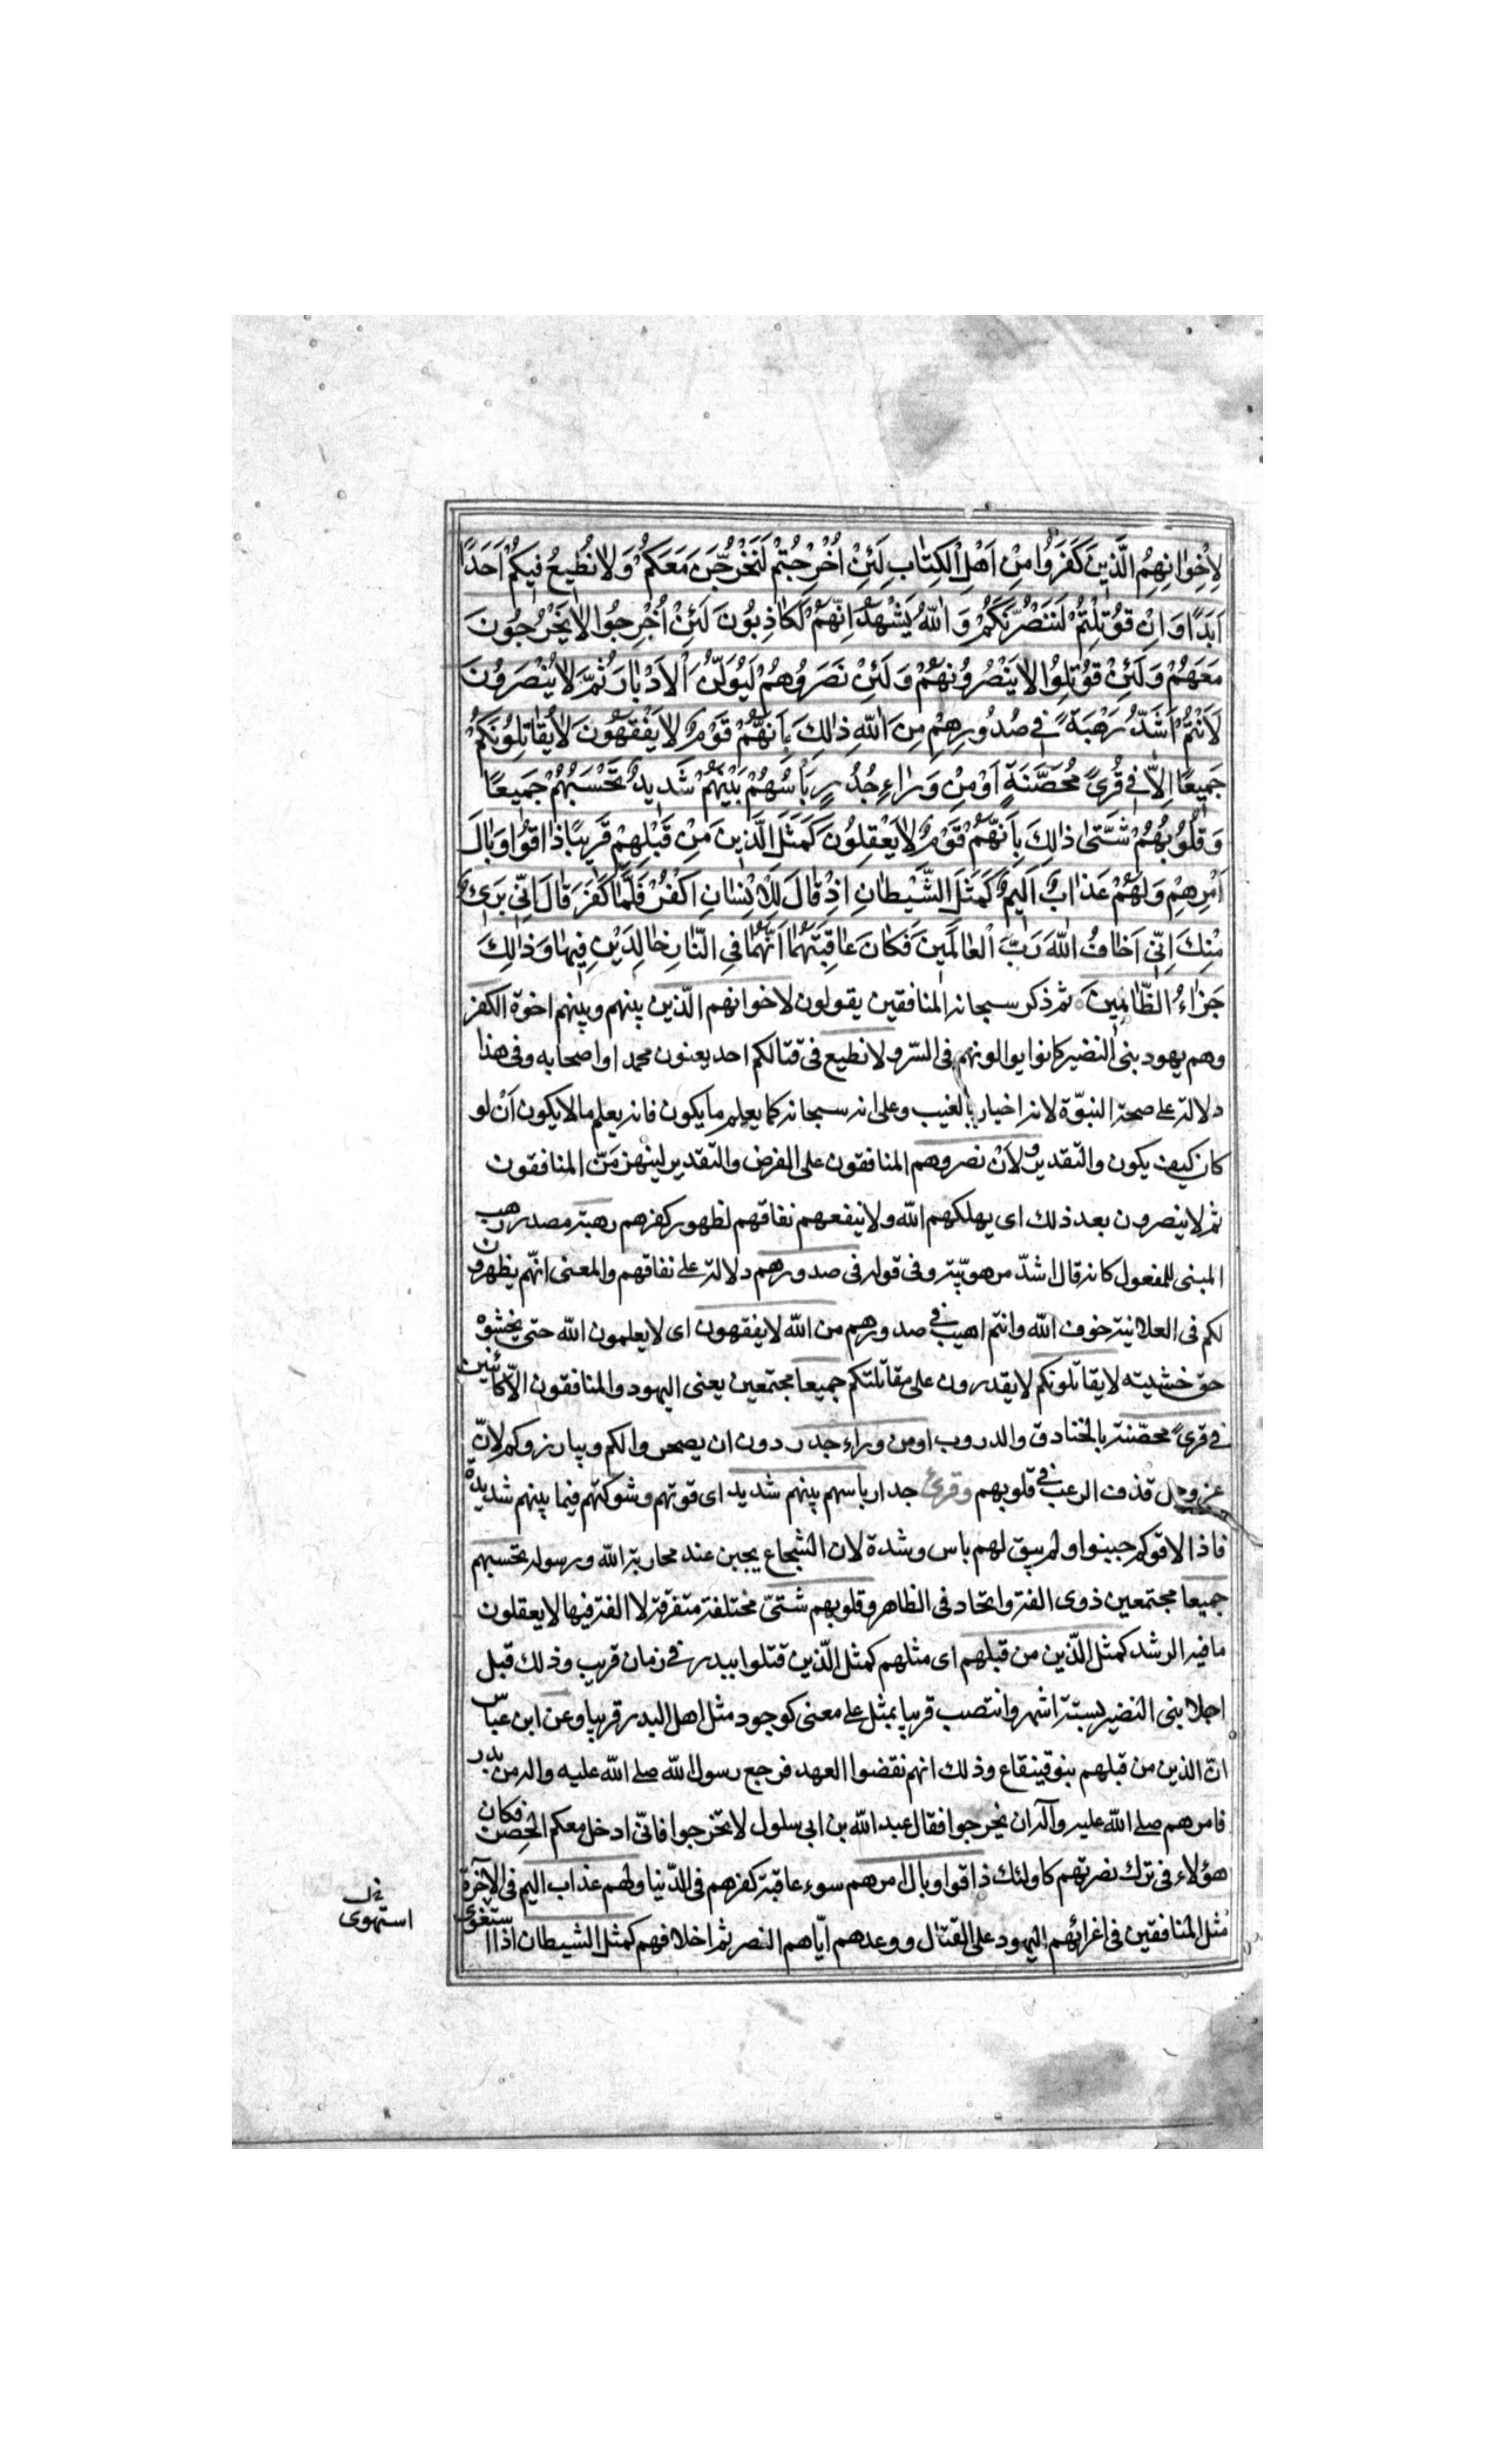 لِاِخْوٰانِهِمُ الَّذِينَ كَفَرُوا مِنْ اَهْلِ الْكِتٰابِ لَئِنْ اُخْرِجْتُمْ لَنَخْرُجَنَّ مَعَكُمْ وَلٰا نُطِيعُ فِيكُمْ اَحَدًا
اَبَدًا وَاِنْ قُوتِلْتُمْ لَنَنْصُرَنَّكُمْ وَاللّٰهُ يَشْهَدُ اِنَّهُمْ لَكٰاذِبُونَ لَئِنْ اُخْرِجُوا لٰا يَخْرُجُونَ
مَعَهُمْ وَلَئِنْ قُوتِلُوا لٰا يَنْصُرُونَهُمْ وَلَئِنْ نَصَرُوهُمْ لَيُوَلُّنَّ الْاَدْبٰارَ ثُمَّ لٰا يُنْصَرُونَ
لَاَنْتُمْ اَشَدُّ رَهْبَةً فِي صُدُورِهِمْ مِنَ اللّٰهِ ذٰلِكَ بِاَنَّهُمْ قَوْمٌ لٰا يَفْقَهُونَ لٰا يُقٰاتِلُونَكُمْ
جَمِيعًا اِلّٰا فِي قُرًى مُحَصَّنَةٍ اَوْ مِنْ وَرٰاءِ جُدُرٍ بَأْسُهُمْ بَيْنَهُمْ شَدِيدٌ تَحْسَبُهُمْ جَمِيعًا
وَقُلُوبُهُمْ شَتّٰى ذٰلِكَ بِاَنَّهُمْ قَوْمٌ لٰا يَعْقِلُونَ كَمَثَلِ الَّذِينَ مِنْ قَبْلِهِمْ قَرِيبًا ذٰاقُوا وَبٰالَ
اَمْرِهِمْ وَلَهُمْ عَذٰابٌ اَلِيمٌ كَمَثَلِ الشَّيْطٰانِ اِذْ قٰالَ لِلْاِنْسٰانِ اكْفُرْ فَلَمّٰا كَفَرَ قٰالَ اِنِّي بَرِيءٌ
مِنْكَ اِنِّي اَخٰافُ اللّٰهَ رَبَّ الْعٰالَمِينَ فَكٰانَ عٰاقِبَتَهُمٰا اَنَّهُمٰا فِي النّٰارِ خٰالِدَيْنِ فِيهٰا وَذٰلِكَ
جَزٰاءُ الظّٰالِمِينَ ثم ذكر سبحانه المنافقين يقولون لاخوانهم الّذين بينهم وبينهم اخوة الكفر
وهم يهود بنى النضير كانوا يوالونهم فى السّر ولا نطيع فى قتالكم احد يعنون محمد او اصحابه وفى هذا
دلالة على صحة النبوّة لانه اخبار بالغيب وعلى انه سبحانه كما يعلم ما يكون فانه يعلم ما لا يكون اَنْ لو
كان كيف يكون والتقدير ولاَنْ نصروهم المنافقون على الفرض والتقدير لينهزمَنّ المنافقون
ثم لا ينصرون بعد ذلك اى يهلكهم الله ولا ينفعهم نفاقهم لظهور كفرهم رهبة مصدر رهب
المبنى للمفعول كانه قال اشدّ مرهوبيّة وفى قوله فى صدورهم دلالة على نفاقهم والمعنى انهم يظهرون
لكم فى العلانية خوف الله وانتم اهيب فى صدورهم من الله لا يفقهون اى لا يعلمون الله حتى يخشوه
حق خشيته لا يقاتلونكم لا يقدرون على مقاتلتكم جميعا مجتمعين يعنى اليهود والمنافقون الّا كائنين
فى قرىً محصّنة بالخنادق والدروب او من وراء جدر دون ان يصحروا لكم ويبارزوكم لانّ
عز وجل قذف الرعب فى قلوبهم وقرئ جدار باسهم بينهم شديد اى قوتهم وشوكتهم فيما بينهم شديدة
فاذا لاقوكم جبنوا ولم يبق لهم باس وشدة لان الشجاع يجبن عند محاربة الله ورسوله تحسبهم
جميعا مجتمعين ذوى الفة واتحاد فى الظاهر وقلوبهم شتىّ مختلفة متفرقة لا الفة فيها لا يعقلون
ما فيه الرشد كمثل الّذين من قبلهم اى مثلهم كمثل الّذين قتلوا ببدر فى زمان قريب وذلك قبل
اجلا بنى النضير بستة اشهر وانتصب قريبا بمثل على معنى كوجود مثل اهل البدر قريبا وعن ابن عباس
انّ الذين من قبلهم بنو قينقاع وذلك انهم نقضوا العهد فرجع رسول الله صلى الله عليه واله من بدر
فامرهم صلى الله عليه وآله ان يخرجوا فقال عبد الله بن ابى سلول لا تخرجوا فانّى ادخل معكم الحصن فكان
هؤلاء فى ترك نصرتهم كاولئك ذاقوا وبال امرهم سوء عاقبة كفرهم فى الدّنيا ولهم عذاب اليم فى الآخرة
مثل المنافقين فى اغرائهم اليهود على القتال ووعدهم ايّاهم النصر ثم اخلافهم كمثل الشيطان اذا استغوى
استهوى